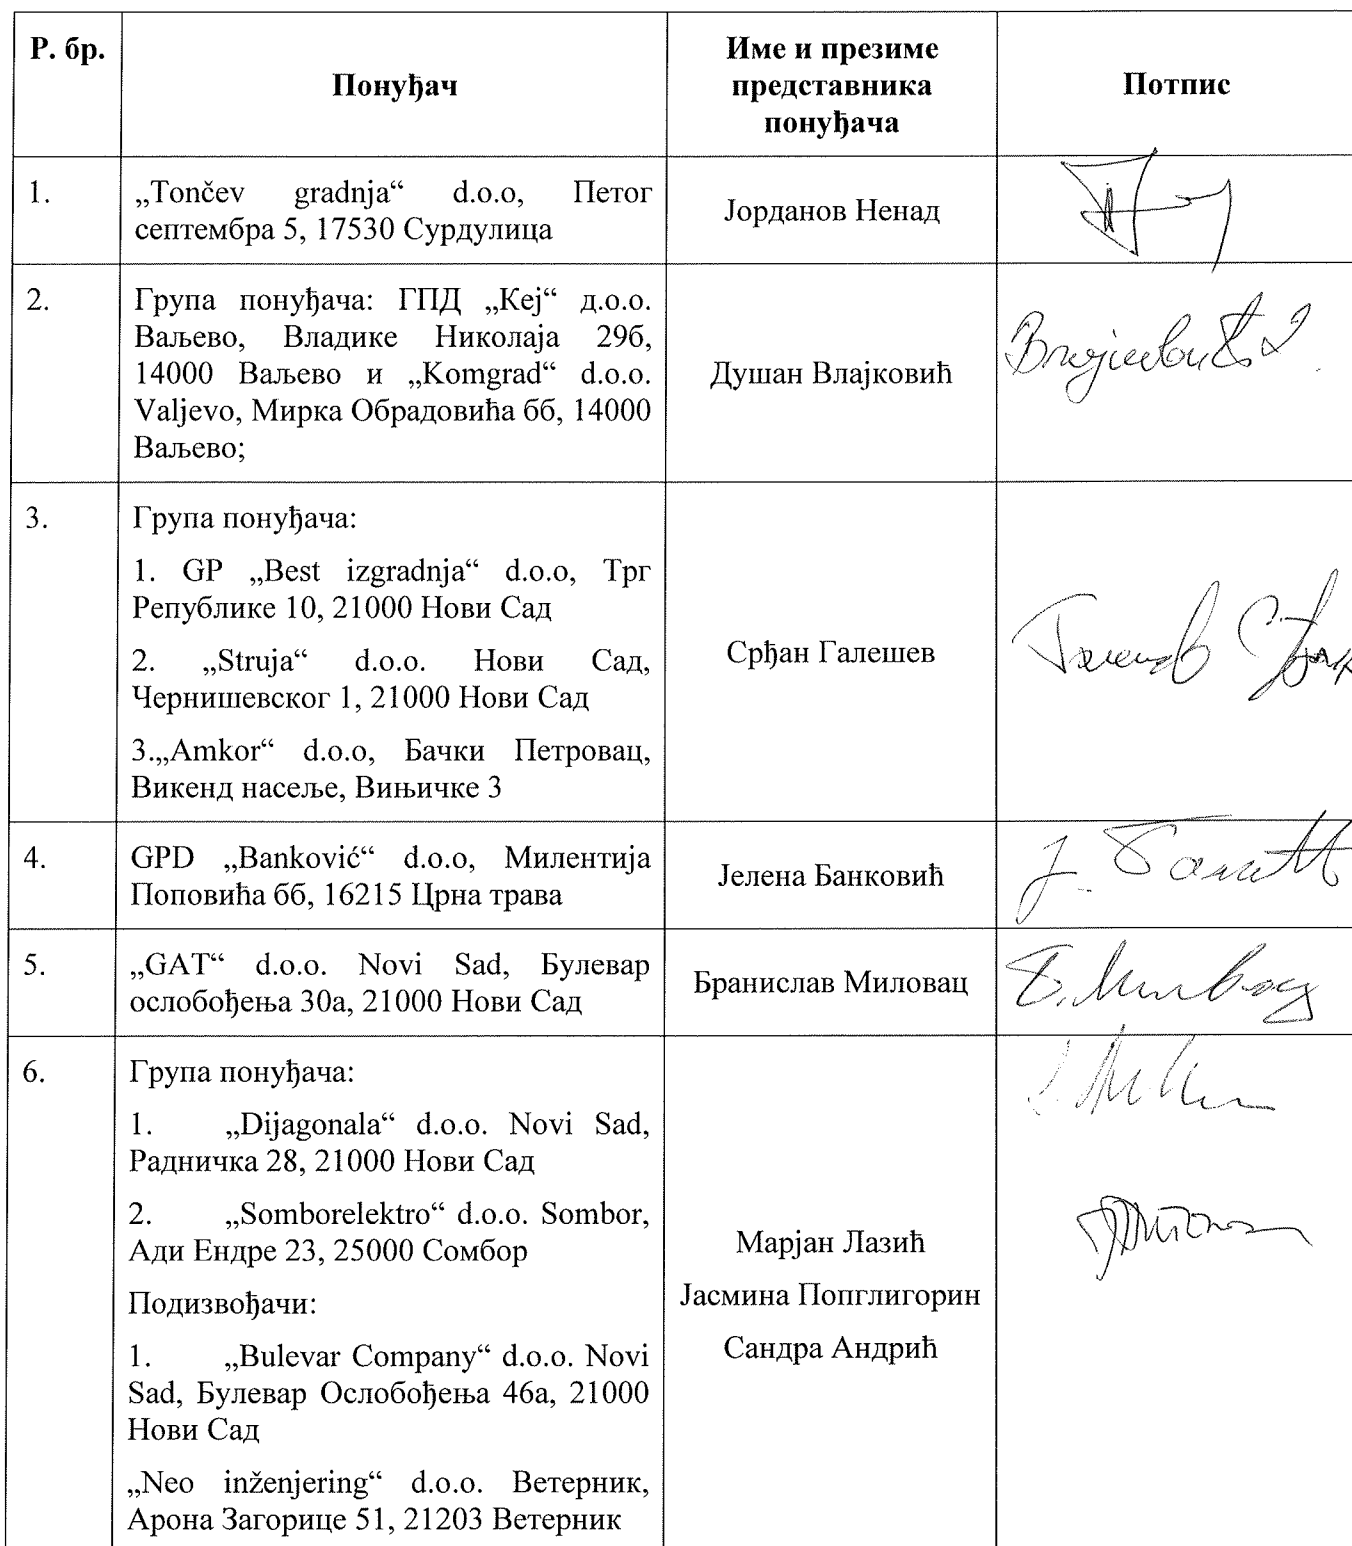 Р. бр.
Понуђач
Име и презиме
представника
понуђача
Потпис
1.
„Tončev gradnja“ d.o.o, Петог
септембра 5, 17530 Сурдулица
Јорданов Ненад
2.
Група понуђача: ГПД „Кеј“ д.о.о.
Ваљево, Владике Николаја 29б,
14000 Ваљево и „Komgrad“ d.o.o.
Valjevo, Мирка Обрадовића бб, 14000
Ваљево;
Душан Влајковић
3.
Група понуђача:
1. GP „Best izgradnja“ d.o.o, Трг
Републике 10, 21000 Нови Сад
2. „Struja“ d.o.o. Нови Сад,
Чернишевског 1, 21000 Нови Сад
3.„Amkor“ d.o.o, Бачки Петровац,
Викенд насеље, Вињичке 3
Срђан Галешев
4.
GPD „Banković“ d.o.o, Милентија
Поповића бб, 16215 Црна трава
Јелена Банковић
5.
„GAT“ d.o.o. Novi Sad, Булевар
ослобођења 30а, 21000 Нови Сад
Бранислав Миловац
Б. Миловац
6.
Група понуђача:
1. „Dijagonala“ d.o.o. Novi Sad,
Радничка 28, 21000 Нови Сад
2. „Somborelektro“ d.o.o. Sombor,
Ади Ендре 23, 25000 Сомбор
Подизвођачи:
1. „Bulevar Company“ d.o.o. Novi
Sad, Булевар Ослобођења 46а, 21000
Нови Сад
„Neo inženjering“ d.o.o. Ветерник,
Арона Загорице 51, 21203 Ветерник
Марјан Лазић
Јасмина Попглигорин
Сандра Андрић